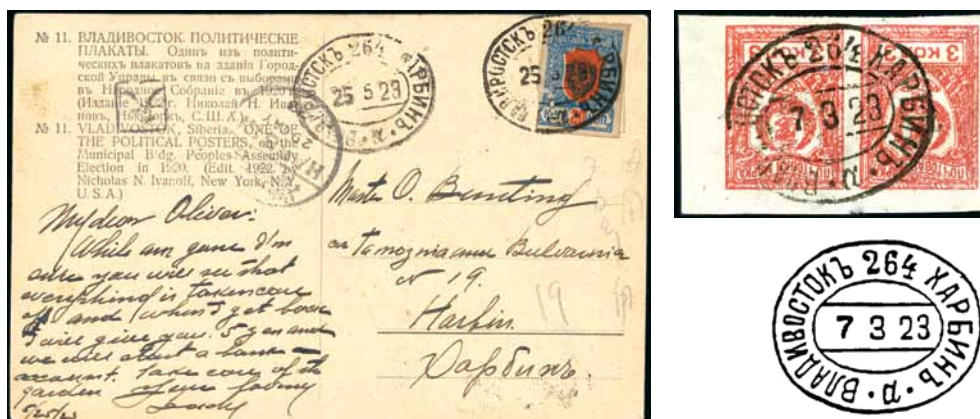 № 11. ВЛАДИВОСТОК. ПОЛИТИЧЕСКІЕ
ПЛАКАТЫ. Одинъ изъ полити-
ческихъ плакатовъ на зданіи Город-
ской Управы въ связи съ выборами
въ Народное Собраніе въ 1920 г.
(Изданіе 1922 г. Николай Н. Ива-
новъ, Нью-Іоркъ, С.Ш.А.)
№ 11. VLADIVOSTOK, Siberia. ONE OF
THE POLITICAL POSTERS, on the
Municipal Bldg. Peoples Assembly
Election in 1920. (Edit. 1922
Nicholas N. Ivanoff, New York, N.Y.
U.S.A.)
My dear Oliver:
While am gone I'm
sure you will see that
everything is taken care
of and when I get back
I will give you 5 yen and
we will start a bank
account. Take care of the
garden
Daddy
5/25/23
264
25 5 23
ВЛАДИВОСТОКЪ 264 ХАРБИНЪ
25 5 23
Master O. Bunting
19.
Harbin.
Харбинъ
19
3 КОП 3
264 ХАРБИНЪ · а ·
7 3 23
ВЛАДИВОСТОКЪ 264 ХАРБИНЪ · а ·
7 3 23